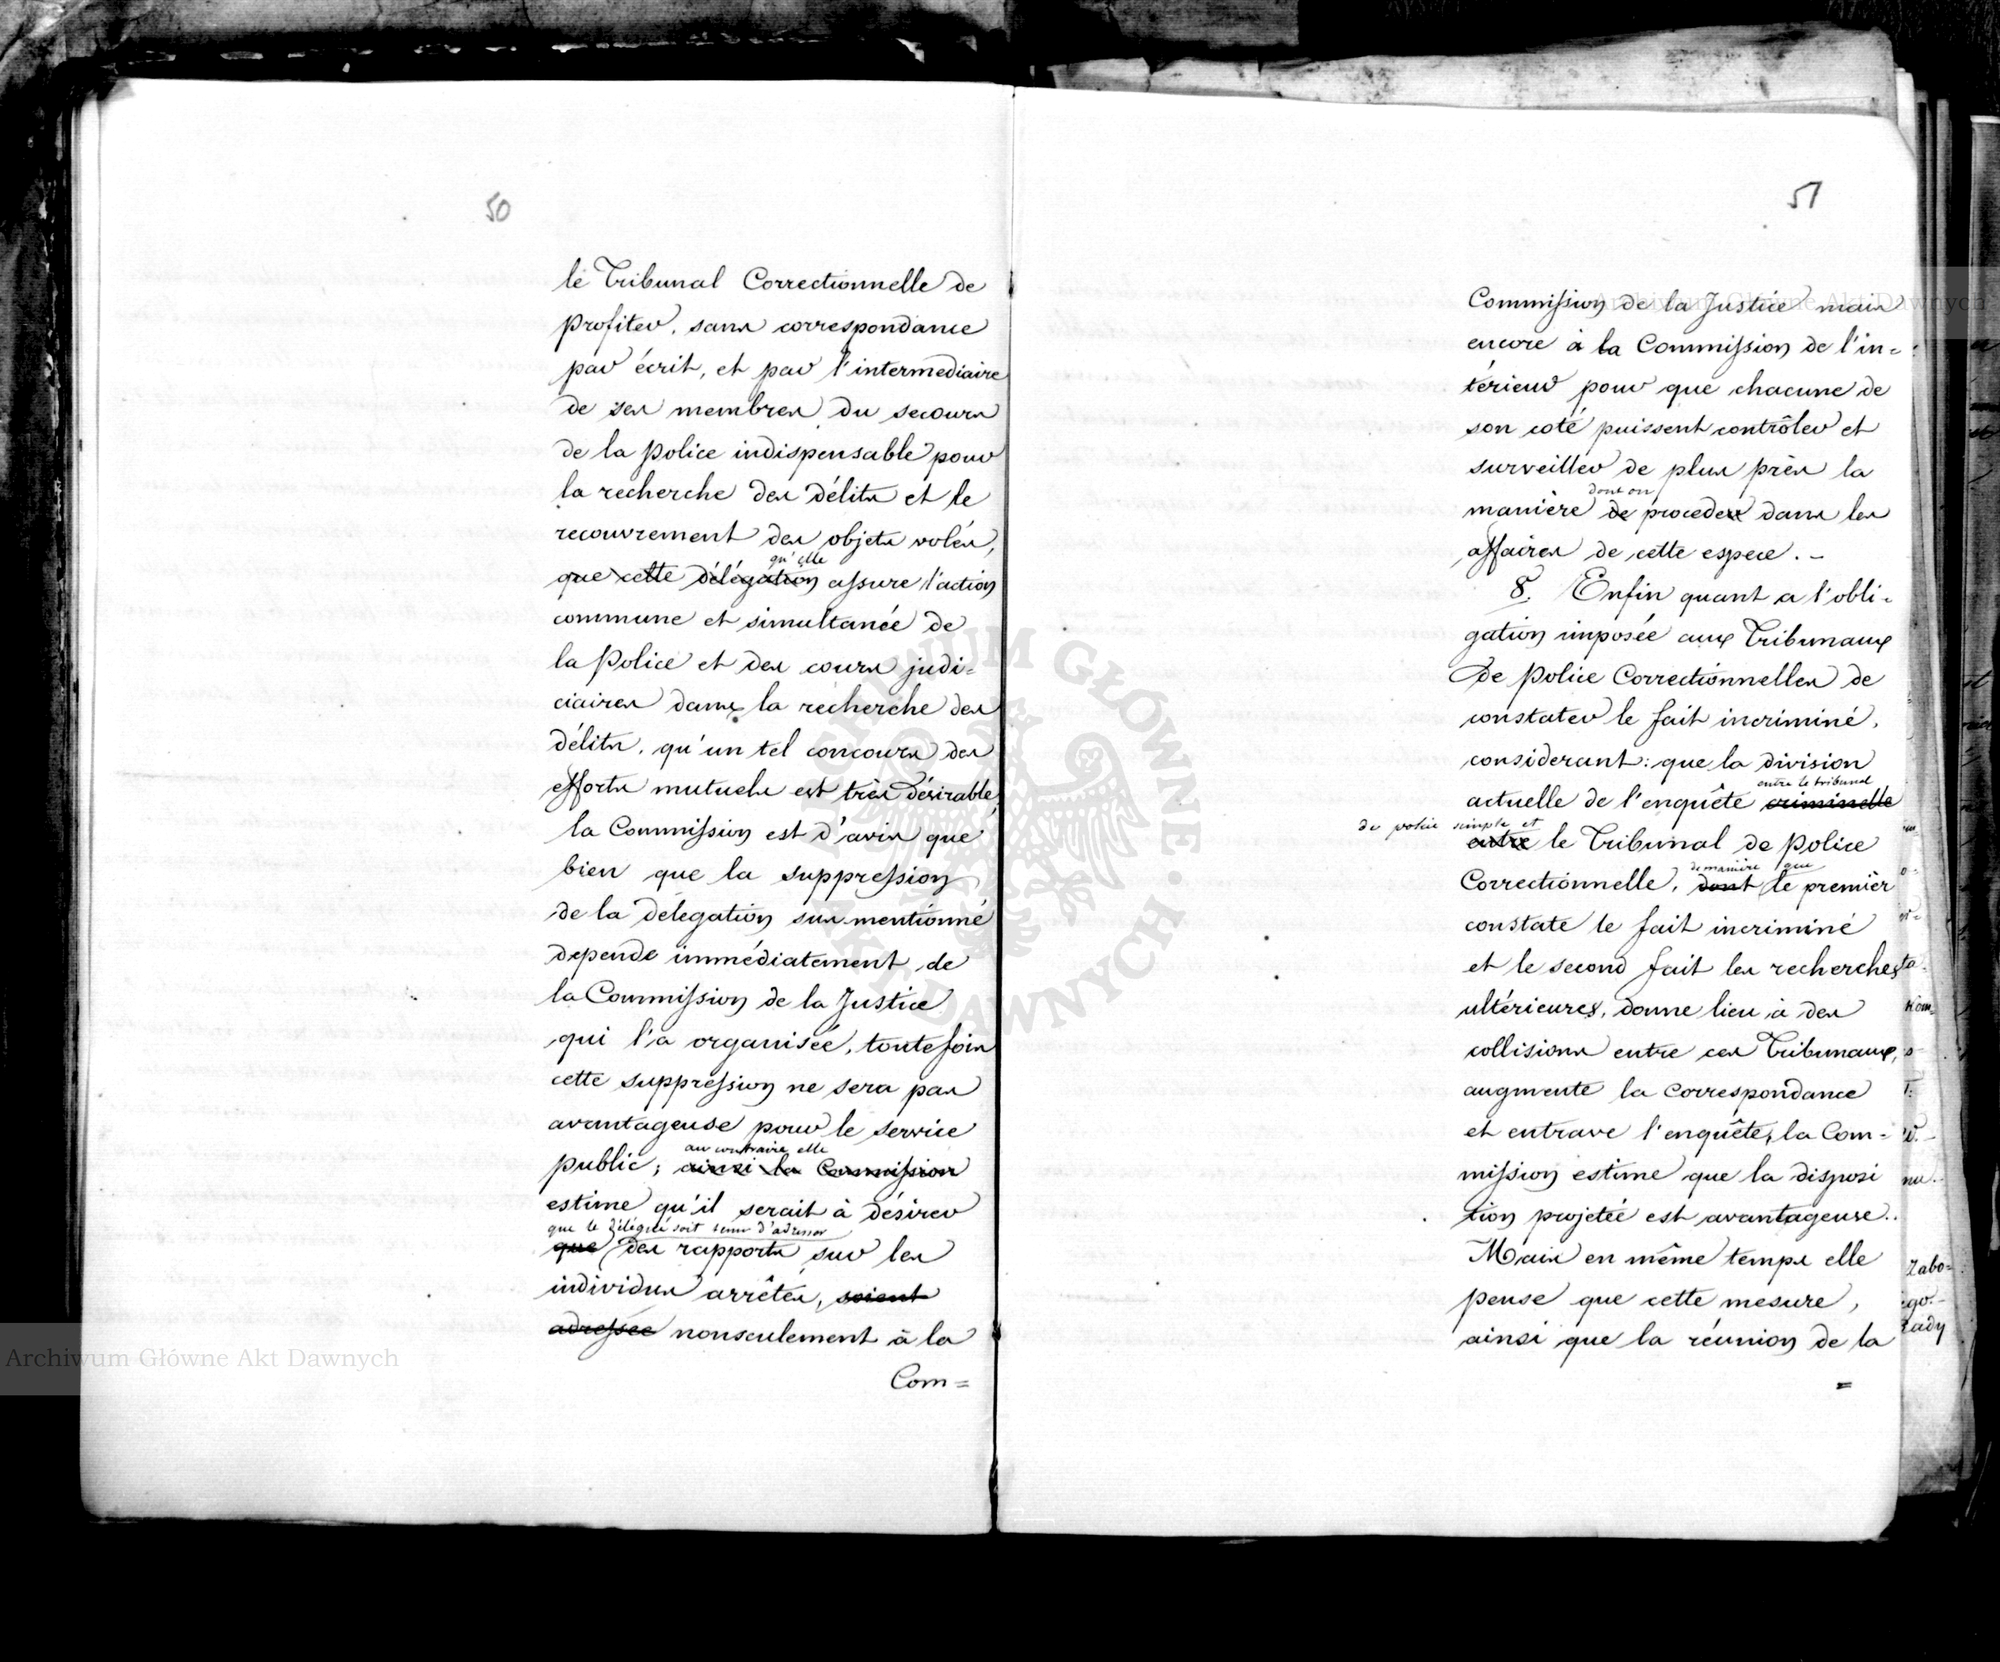 50
le Tribunal Correctionnelle de
profiter, sans correspondance
par écrit, et par l'intermediaire
de ses membres du secours
de la police indispensable pour
la recherche des délits et le
recouvrement des objets volés,
qu'elle
que cette délégation assure l'action
commune et simultanée de
la Police et des cours judi=
ciaires dans la recherche des
délits, qu'un tel concours des
efforts mutuels est très désirable,
la Commission est d'avis que
bien que la suppression
de la délegation sus mentionné
depende immédiatement de
la Commission de la Justice
qui l'a organisée, toutefois
cette suppression ne sera pas
avantageuse pour le service
au contraire elle
public; ainsi la Commission
estime qu'il serait à désirer
que le délégué soit tenu d'adresser
que des rapports sur les
individus arrêtés, soient
adressee nonseulement à la
Com=
51
Commission de la Justice mais
encore à la Commission de l'in=
térieur pour que chacune de
son coté puissent contrôler et
surveiller de plus près la
dont on
manière de proceder dans les
affaires de cette espece. –
8. Enfin quant a l'obli=
gation imposée aux Tribunaux
De police Correctionnelles de
constater le fait incriminé,
considerant: que la division
entre le tribunal
actuelle de l'enquête criminelle
de police simple et
entre le Tribunal de Police
de manière que
Correctionnelle, dont le premier
constate le fait incriminé
et le second fait les recherches
ultérieures, donne lieu à des
collisions entre ces Tribunaux,
augmente la correspondance
et entrave l'enquête, la Com=
mission estime que la disposi
tion projetée est avantageuse.
Mais en même temps elle
pense que cette mesure,
ainsi que la réunion de la
=
Archiwum Główne Akt Dawnych
Archiwum Główne Akt Dawnych
ARCHIWUM GŁÓWNE AKT DAWNYCH